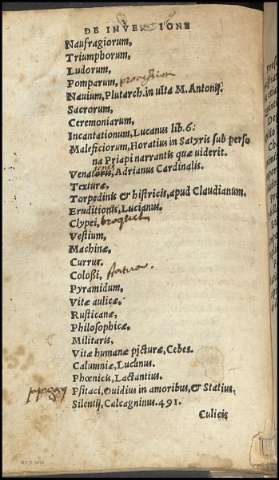 DE INVENTIONE
Naufragiorum,
Triumphorum,
Ludorum,
Pomparum,
Nauium, Plutarch. in uita M. Antonij.
Sacrorum,
Ceremoniarum,
Incantationum, Lucanus lib. 6:
Maleficiorum, Horatius in Satyris sub perso
na Priapi narrantis quæ uiderit.
Venationis, Adrianus Cardinalis.
Texturæ,
Torpedinis & histricis, apud Claudianum.
Eruditionis, Lucianus.
Clypei,
Vestium,
Machinæ,
Currus.
Coloßi,
Pyramidum,
Vitæ aulicæ.
Rusticanæ,
Philosophicæ,
Militaris,
Vitæ humanæ picturæ, Cebes.
Calumniæ, Lucianus.
Phœnicis, Lactantius.
Psitaci, Ouidius in amoribus, & Statius,
Silentij, Calcagninus. 491.
Culicis